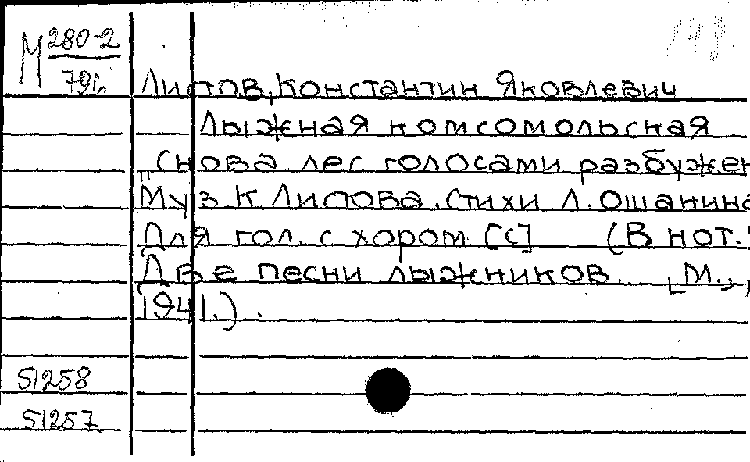 М 280-2
79г.
Листов, Константин Яковлевич
Лыжная комсомольская
"Снова лес голосами разбужен
Муз К Листова. Стихи Л. Ошанина
Для гол. с хором [С] (В нот.:
Две песни лыжников. [М.,
1941.).
51258
51257